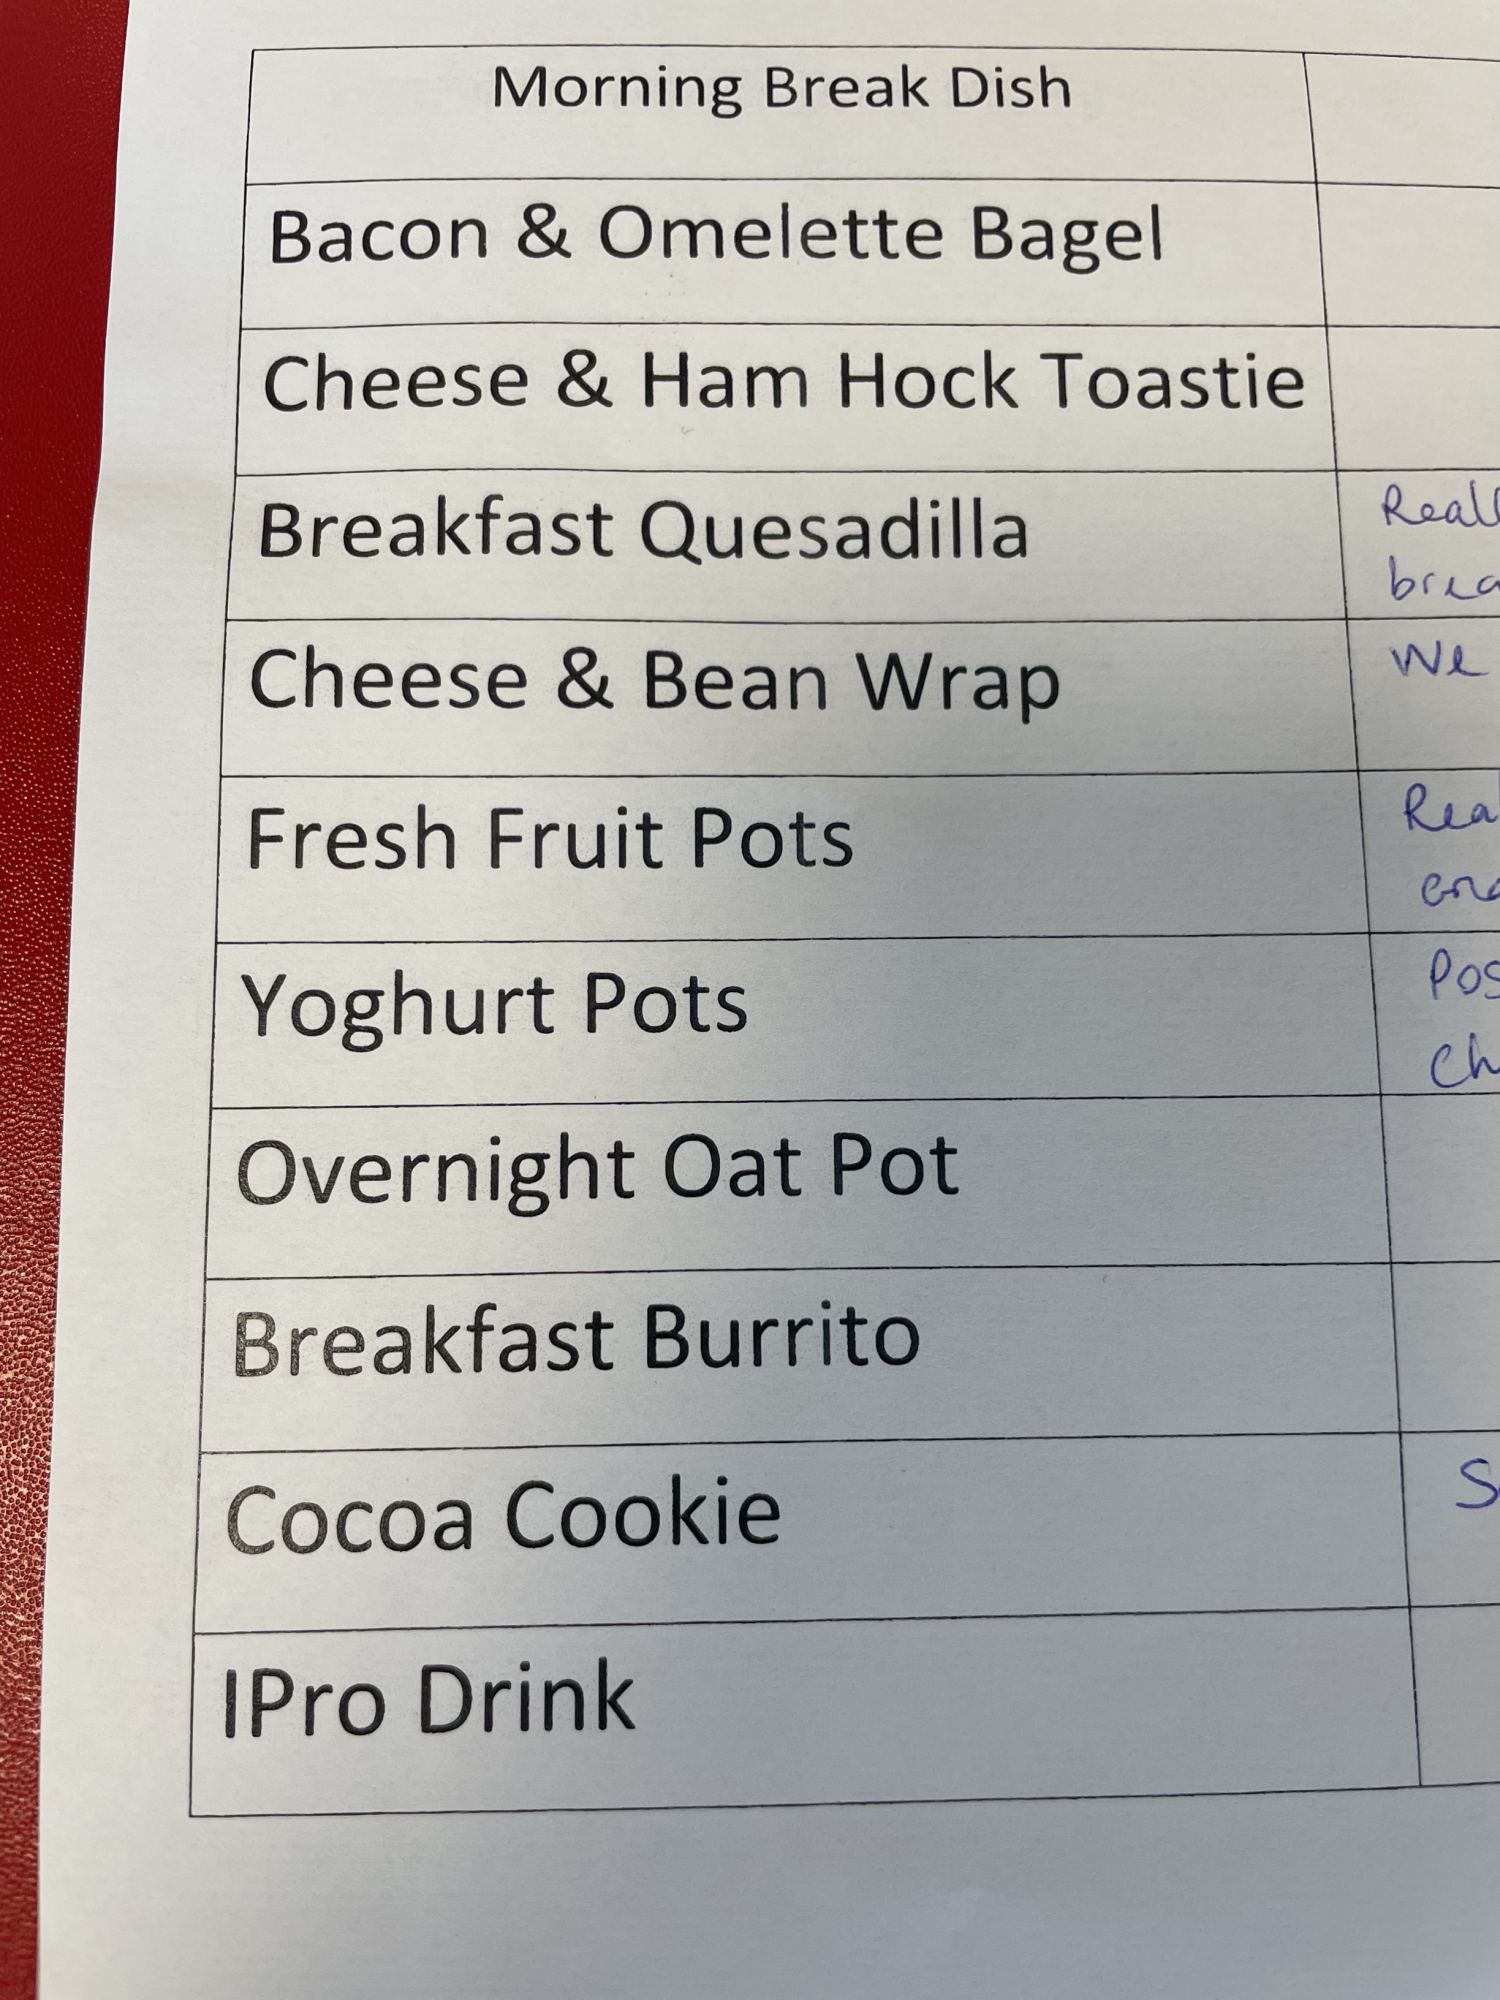 Morning Break Dish
Bacon & Omelette Bagel
Cheese & Ham Hock Toastie
Breakfast Quesadilla
Cheese & Bean Wrap
We
Fresh Fruit Pots
Yoghurt Pots
Overnight Oat Pot
Breakfast Burrito
Cocoa Cookie
IPro Drink